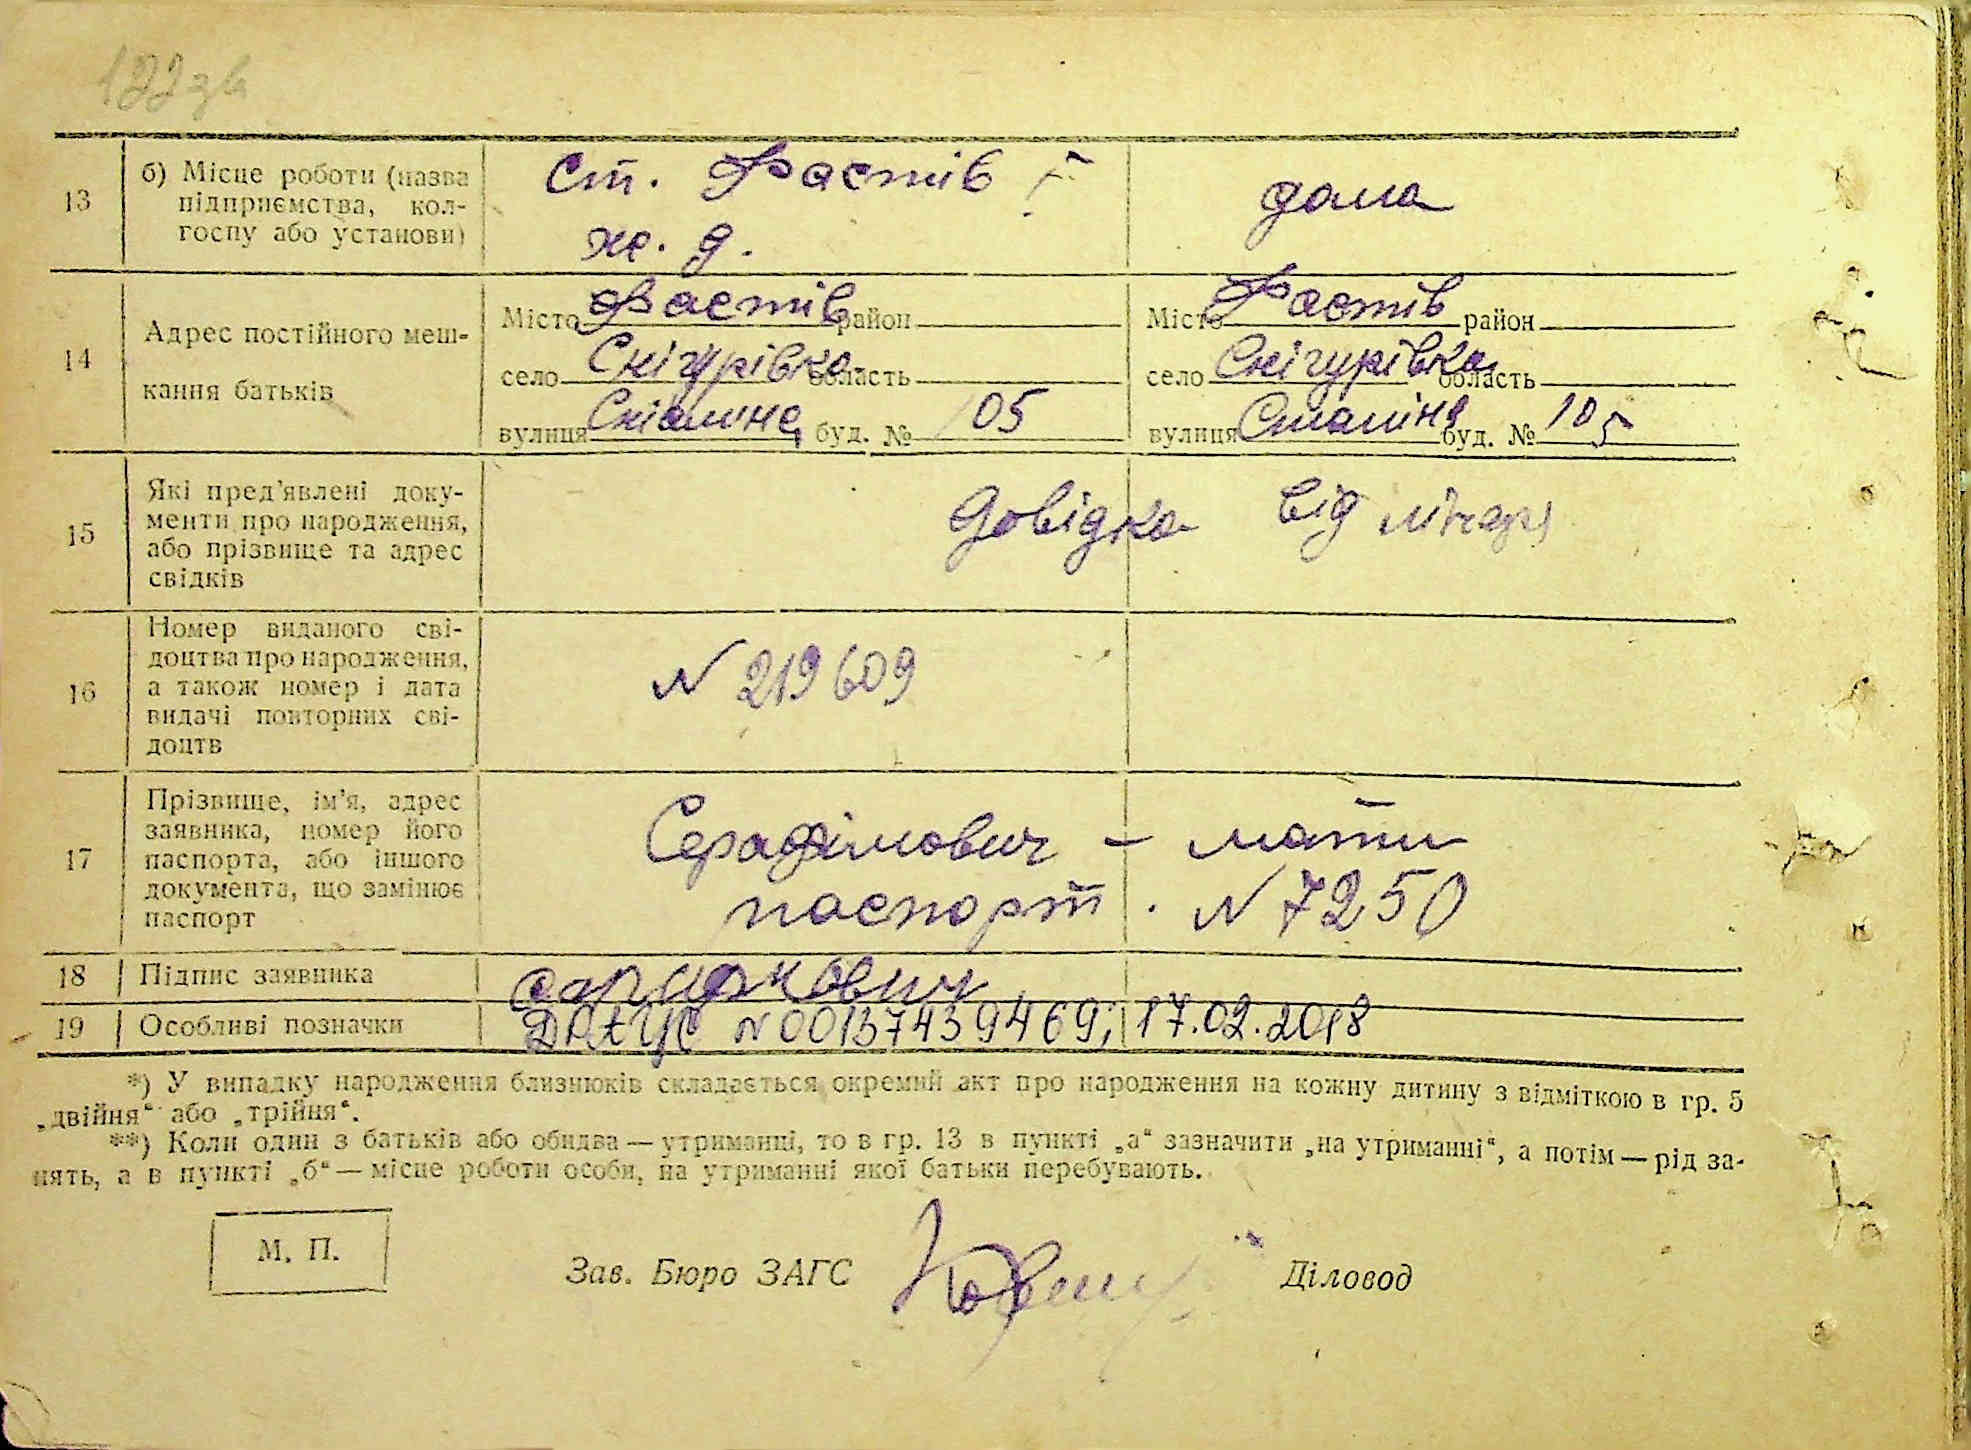 122зв
13
б) Місце роботи (назва
підприємства, кол-
госпу або установи)
Ст. Фастів I
ж. д.
дома
14
Адрес постійного меш-
кання батьків
Місто Фастів район
село Снігурівка область
вулиця Сталіна буд. № 105
Місто Фастів район
село Снігурівка область
вулиця Сталіна буд. № 105
15
Які пред’явлені доку-
менти про народження,
або прізвище та адрес
свідків
Довідка від лікаря
16
Номер виданого сві-
доцтва про народження,
а також номер і дата
видачі повторних сві-
доцтв
N 219609
17
Прізвище, ім’я, адрес
заявника, номер його
паспорта, або іншого
документа, що замінює
паспорт
Серафімович – мати
паспорт. N 7250
18
Підпис заявника
19
Особливі позначки
ДРАЦС N 00137439469; 17.02.2018
*) У випадку народження близнюків складається окремий акт про народження на кожну дитину з відміткою в гр. 5
„двійня“ або „трійня“.
**) Коли один з батьків або обидва — утриманці, то в гр. 13 в пункті „а“ зазначити „на утриманні“, а потім — рід за-
нять, а в пункті „б“ — місце роботи особи, на утриманні якої батьки перебувають.
М. П.
Зав. Бюро ЗАГС
Діловод